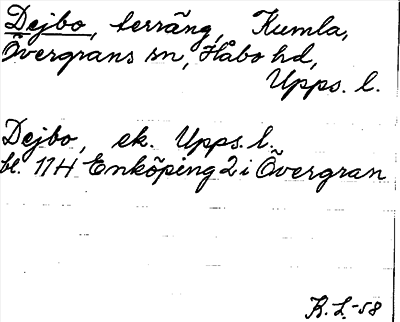 Dejbo, terräng, Kumla,
Övergrans sn, Håbo hd,
Upps. l.
Dejbo, ek. Upps. l.
bl. 11H Enköping 2 i Övergran
R. L. -58